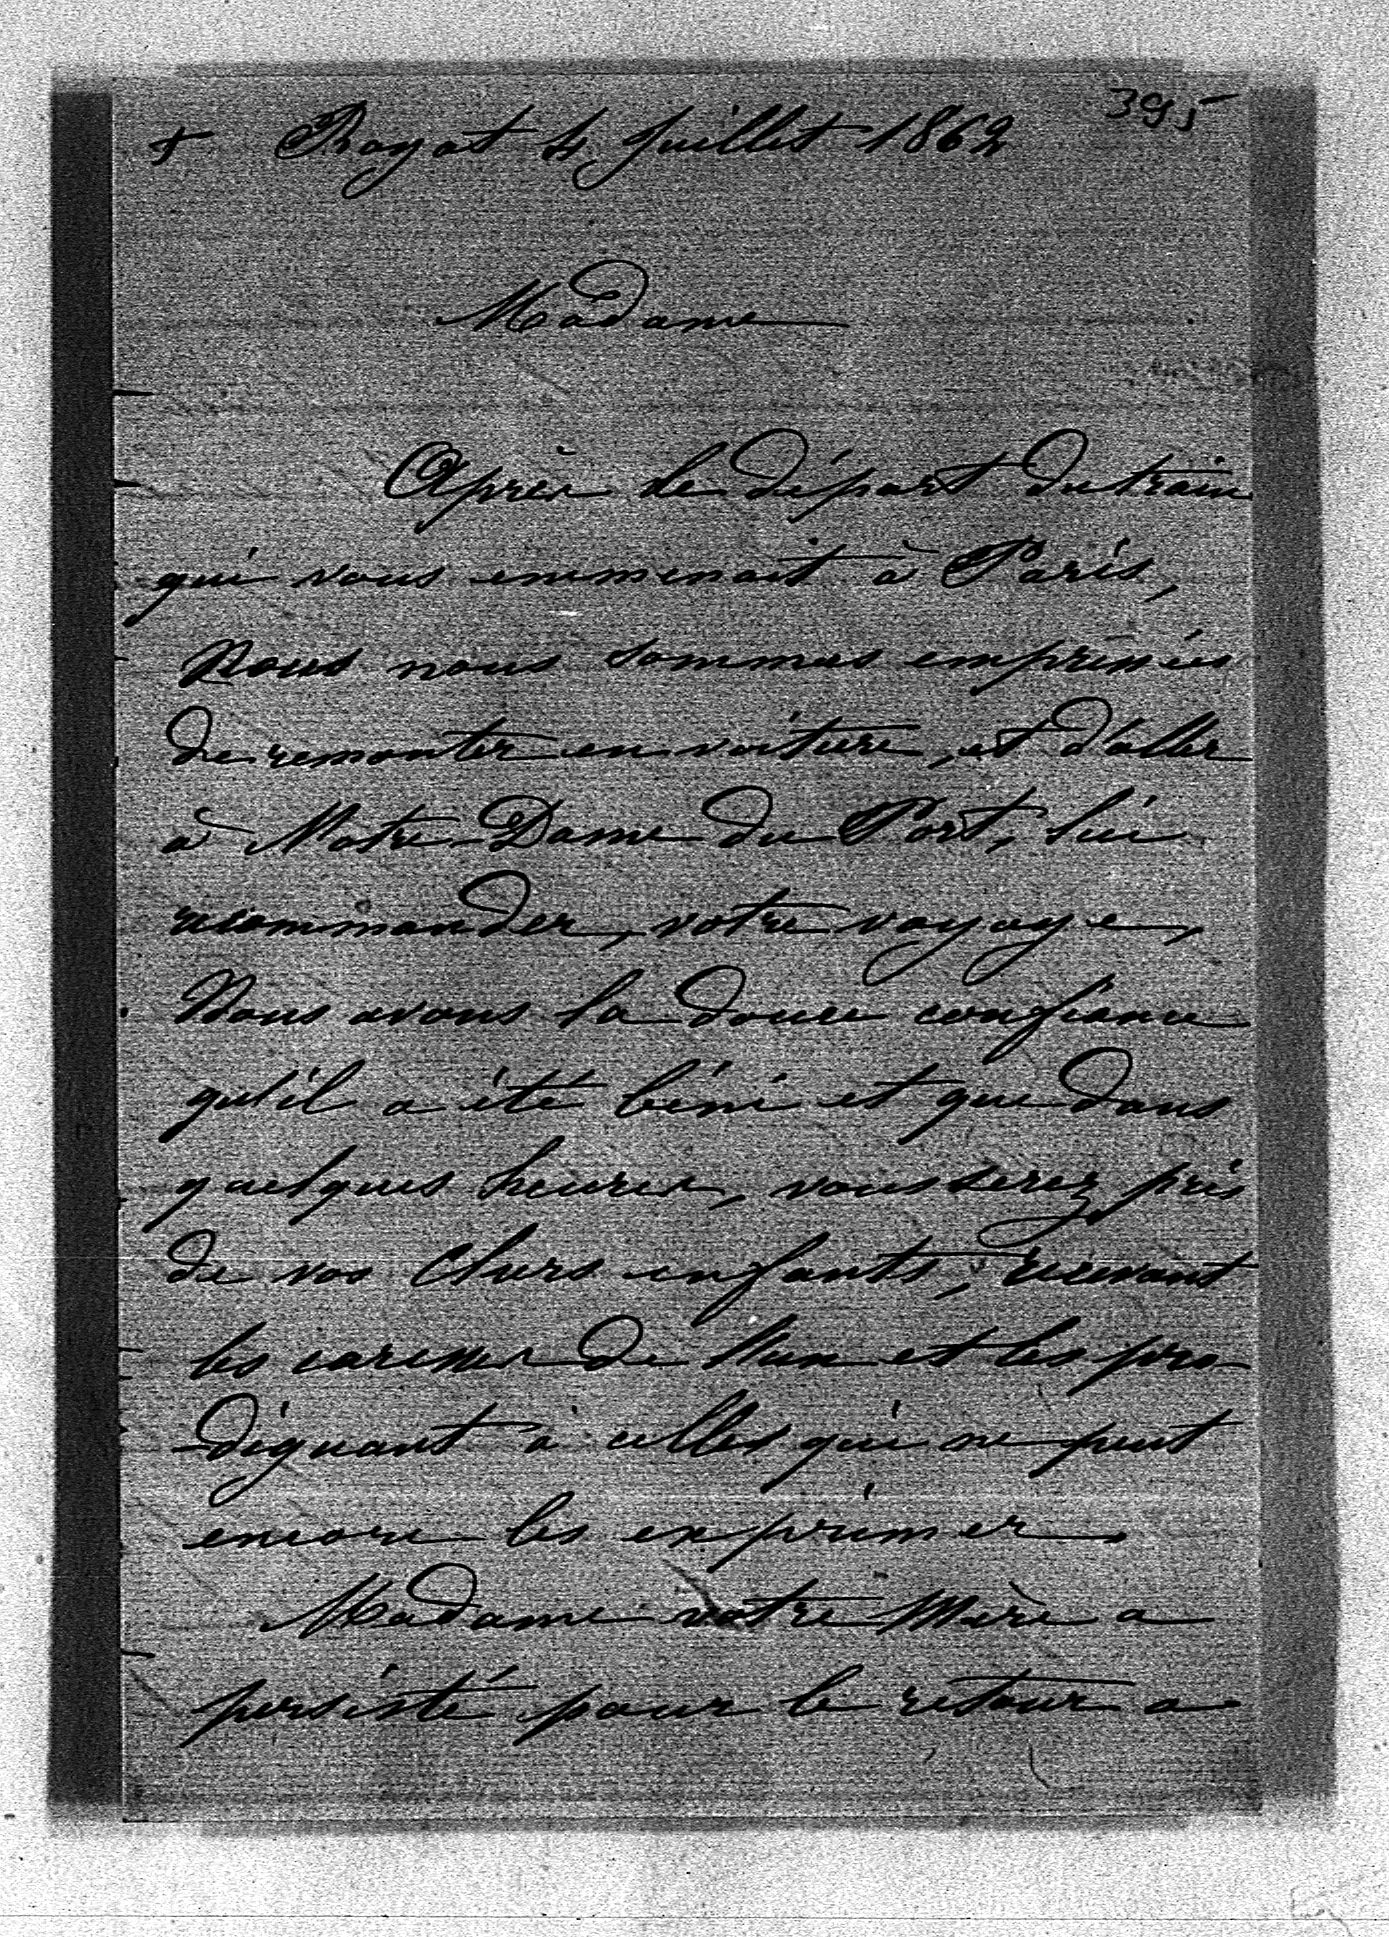 395
+ Royat 4 Juillet 1862
Madame
Après le départ du train
qui vous emmenait à Paris,
Nous nous sommes empressées
de remonter en voiture, et d'aller
à Notre-Dame du Port, lui
recommander, votre voyage,
Nous avons la douce confiance
qu'il a été béni et que dans
quelques heures, vous serez près
de vos chers enfants, recevant
les caresses de l'un et les pro-
-diguant à celles qui ne peut
encore les exprimer.
Madame votre Mère a
persisté pour le retour a